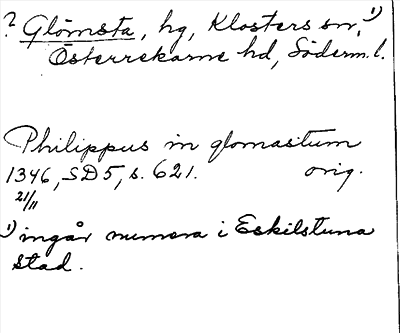 ? Glömsta, hg, Klosters sn,¹)
Österrekarne hd, Söderm. l.
Philippus in glomastum
1346, SD5, s. 621. orig.
21/11
¹) ingår numera i Eskilstuna
stad.